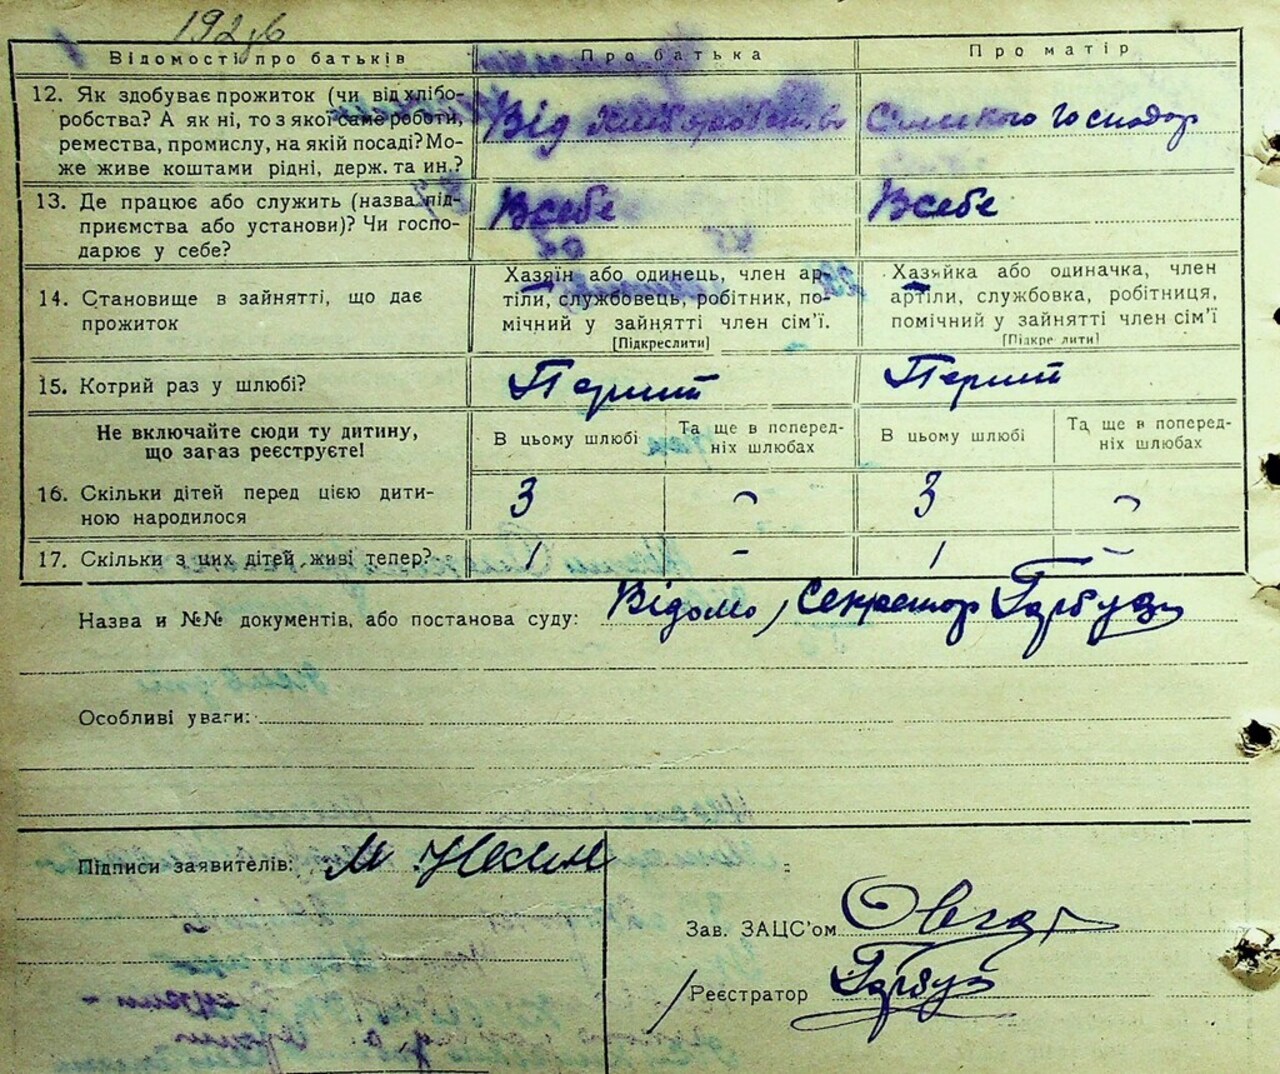 Відомості про батьків
Про батька
Про матір
12. Як здобуває прожиток (чи від хлібо-
робства? А як ні, то з якої саме роботи,
ремества, промислу, на якій посаді? Мо-
же живе коштами рідні, держ. та ин.?
Від
Сільського Господар
13. Де працює або служить (назва під-
приємства або установи)? Чи госпо-
дарює у себе?
Всебе
Всебе
14. Становище в зайнятті, що дає
прожиток
Хазяїн або одинець, член ар-
тіли, службовець, робітник, по-
мічний у зайнятті член сім'ї.
[Підкреслити]
Хазяйка або одиначка, член
артіли, службовка, робітниця,
помічний у зайнятті член сім'ї
[Підкреслити]
15. Котрий раз у шлюбі?
Перший
Перший
Не включайте сюди ту дитину,
що загаз реєструєте!
В цьому шлюбі
Та ще в поперед-
ніх шлюбах
В цьому шлюбі
Та ще в поперед-
ніх шлюбах
16. Скільки дітей перед цією дити-
ною народилося
3
–
3
–
17. Скільки з цих дітей живі тепер?
1
–
1
–
Назва и №№ документів, або постанова суду: Відомо, Секретор Гарбуз
Особливі уваги:
Підписи заявителів: М
Зав. ЗАЦС'ом
Реєстратор Гарбуз